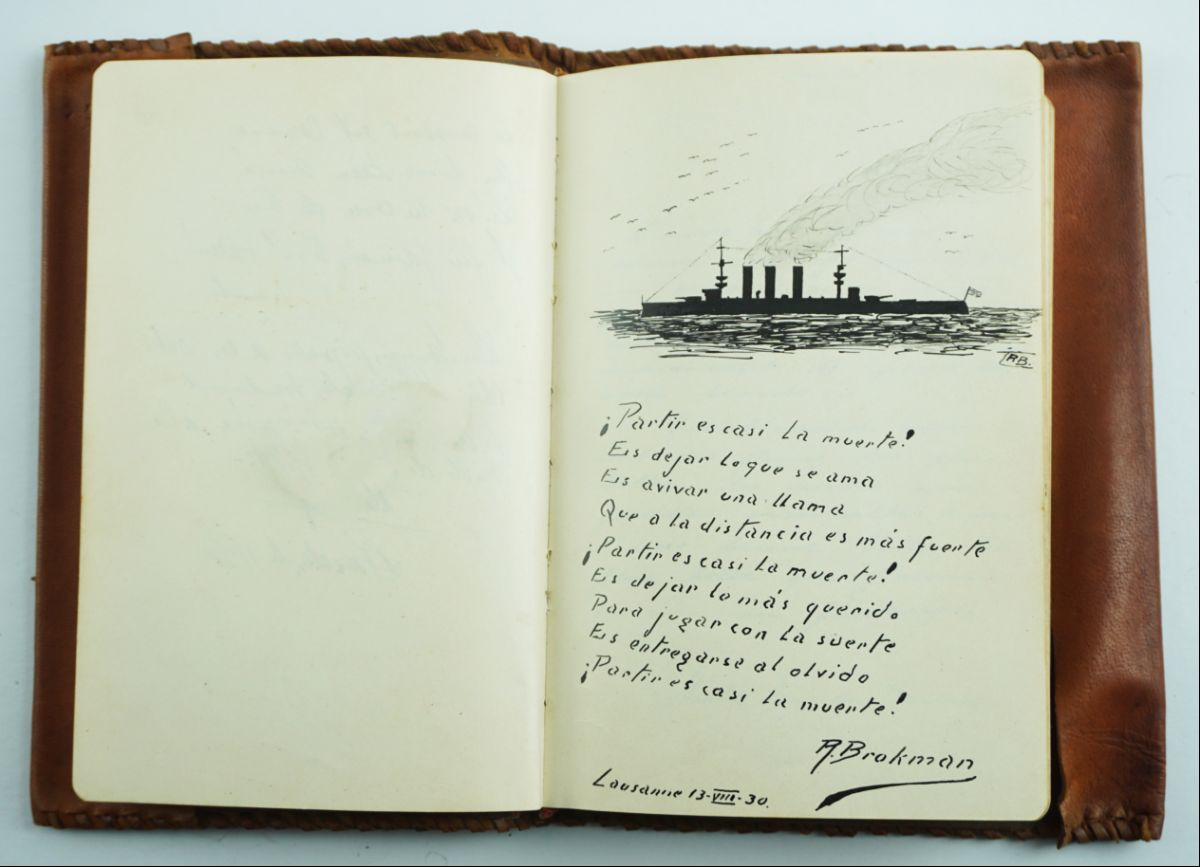 RB.
¡Partir es casi la muerte!
Es dejar lo que se ama
Es avivar una llama
Que a la distancia es más fuerte
¡Partir es casi la muerte!
Es dejar lo más querido
Para jugar con la suerte
Es entregarse al olvido
¡Partir es casi la muerte!
R. Brokman
Lausanne 13-VIII-30.